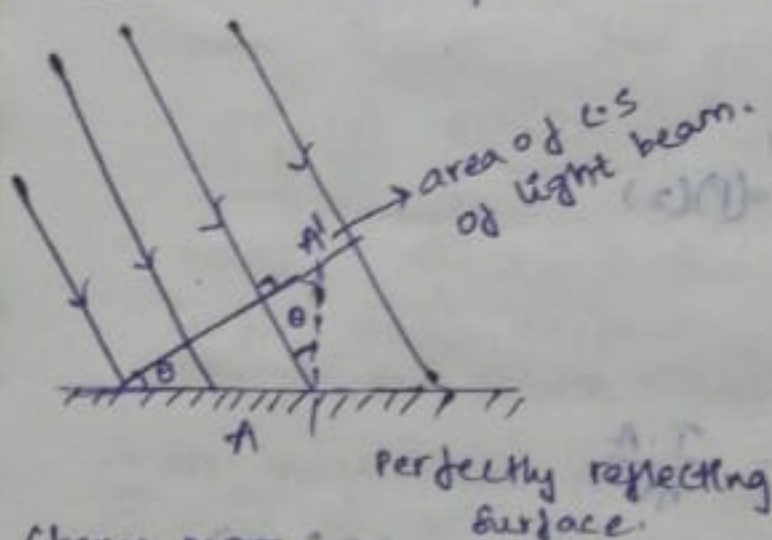 area of c.s
of light beam.
A'
θ
θ
A
Perfectly reflecting
surface.